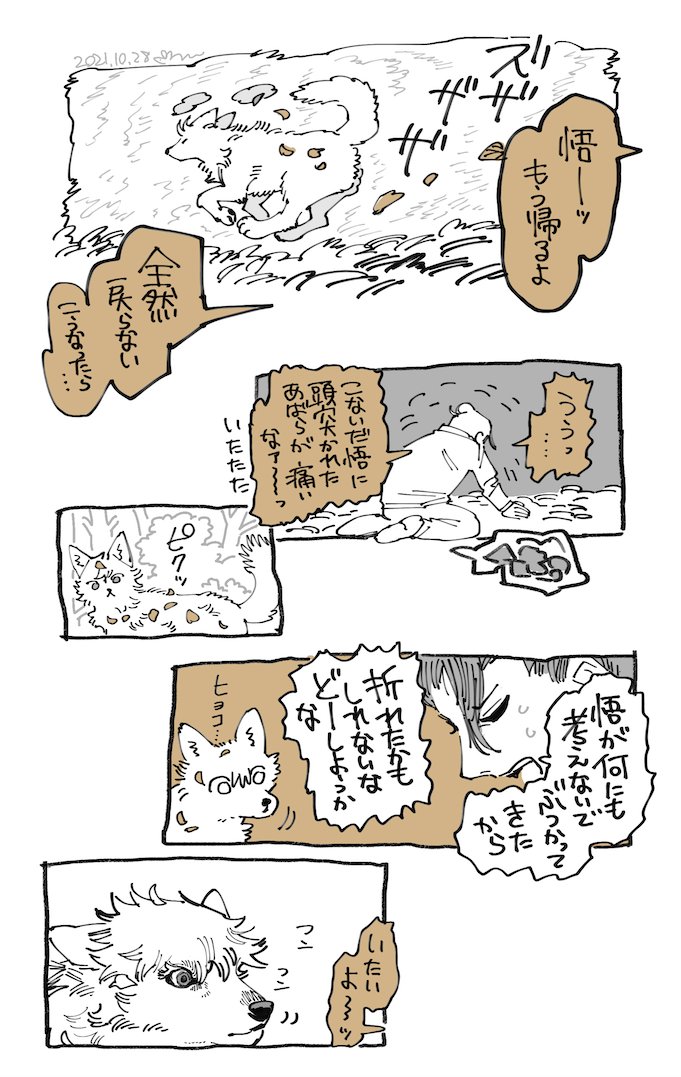 2021.10.28
ズザザザ
悟ーッ
もう帰るよ
全然
戻らない
こうなったら
…
ううっ
……
こないだ悟に
頭突かれた
あばらが痛い
なァ〜〜っ
いたたた
ピクッ
悟が何にも
考えないで
ぶつかって
きた
から
折れたかも
しれないな
どーしようか
な
ヒョコ…
フン
フン
いたい
よ〜〜ッ